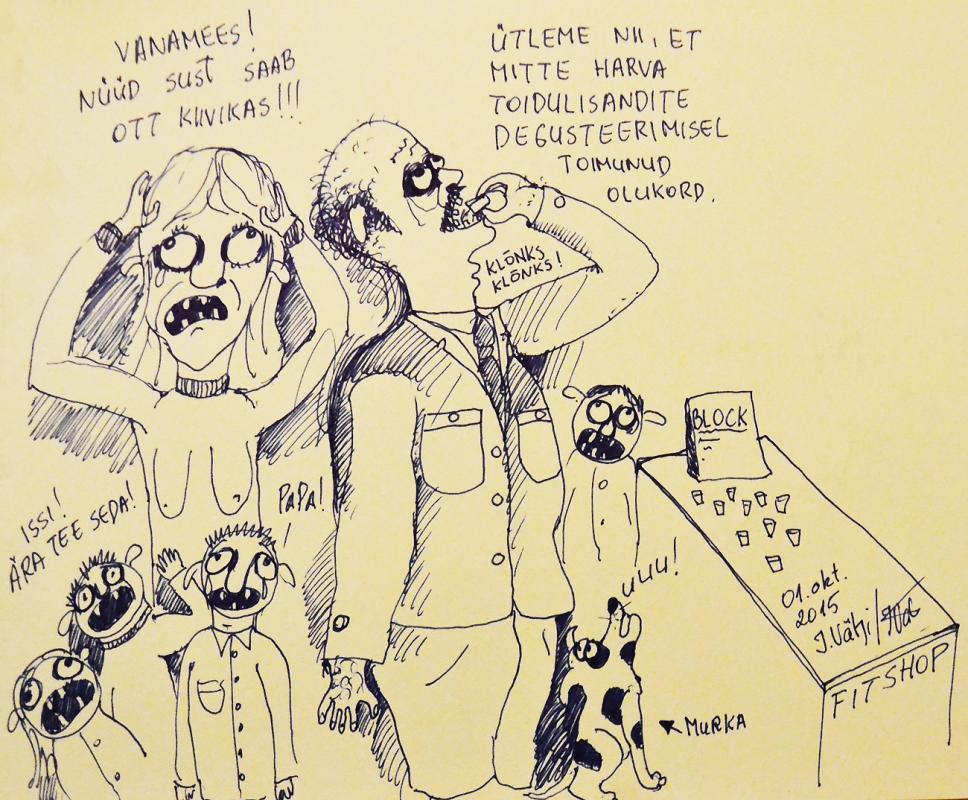 VANAMEES!
NÜÜD SUST SAAB
OTT KIIVIKAS!!!
ÜTLEME NII, ET
MITTE HARVA
TOIDULISANDITE
DEGUSTEERIMISEL
TOIMUNUD
OLUKORD.
KLÕNKS
KLÕNKS!
ISSI!
ÄRA TEE SEDA!
PAPA!
UUU!
BLOCK
01.okt.
2015
J.Välji/
FITSHOP
MURKA